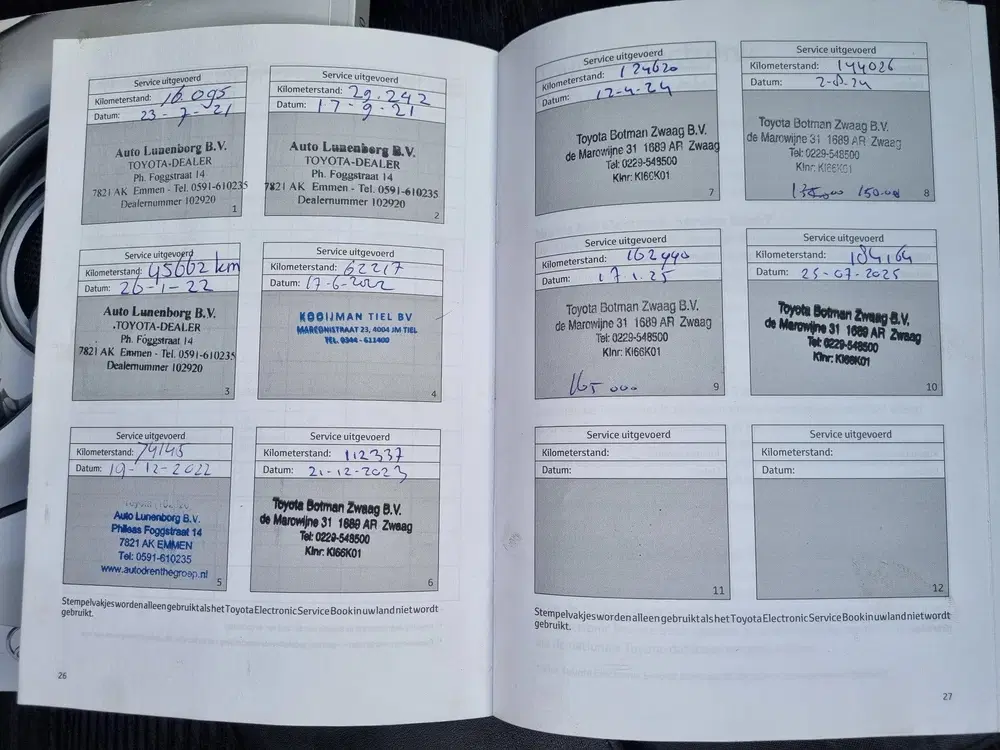 Service uitgevoerd
Kilometerstand: 16095
Datum: 23-7-21
Auto Lunenborg B.V.
TOYOTA-DEALER
Ph. Foggstraat 14
7821 AK Emmen - Tel. 0591-610235
Dealernummer 102920
1
Service uitgevoerd
Kilometerstand: 29.242
Datum: 17-9-21
Auto Lunenborg B.V.
TOYOTA-DEALER
Ph. Foggstraat 14
7821 AK Emmen - Tel. 0591-610235
Dealernummer 102920
2
Service uitgevoerd
Kilometerstand: 45662 km
Datum: 26-1-22
Auto Lunenborg B.V.
TOYOTA-DEALER
Ph. Foggstraat 14
7821 AK Emmen - Tel. 0591-610235
Dealernummer 102920
3
Service uitgevoerd
Kilometerstand: 62217
Datum: 17-6-2022
KOOIJMAN TIEL BV
MARCONISTRAAT 23, 4004 JM TIEL
TEL. 0344-611400
4
Service uitgevoerd
Kilometerstand: 79145
Datum: 19-12-2022
Auto Lunenborg B.V.
Phileas Foggstraat 14
7821 AK EMMEN
Tel: 0591-610235
www.autodrenthegroep.nl
5
Service uitgevoerd
Kilometerstand: 112337
Datum: 21-12-2023
Toyota Botman Zwaag B.V.
de Marowijne 31 1689 AR Zwaag
Tel: 0229-548500
Klnr: KI66K01
6
Stempelvakjes worden alleen gebruikt als het Toyota Electronic Service Book in uw land niet wordt
gebruikt.
26
Service uitgevoerd
Kilometerstand: 124620
Datum: 12-4-24
Toyota Botman Zwaag B.V.
de Marowijne 31 1689 AR Zwaag
Tel: 0229-548500
Klnr: KI66K01
7
Service uitgevoerd
Kilometerstand: 144026
Datum: 2-8-24
Toyota Botman Zwaag B.V.
de Marowijne 31 1689 AR Zwaag
Tel: 0229-548500
Klnr: KI66K01
150.000
8
Service uitgevoerd
Kilometerstand: 162990
Datum: 17.1.25
Toyota Botman Zwaag B.V.
de Marowijne 31 1689 AR Zwaag
Tel: 0229-548500
Klnr: KI66K01
165000
9
Service uitgevoerd
Kilometerstand: 184164
Datum: 25-07-2025
Toyota Botman Zwaag B.V.
de Marowijne 31 1689 AR Zwaag
Tel: 0229-548500
Klnr: KI66K01
10
Service uitgevoerd
Kilometerstand:
Datum:
11
Service uitgevoerd
Kilometerstand:
Datum:
12
Stempelvakjes worden alleen gebruikt als het Toyota Electronic Service Book in uw land niet wordt
gebruikt.
27